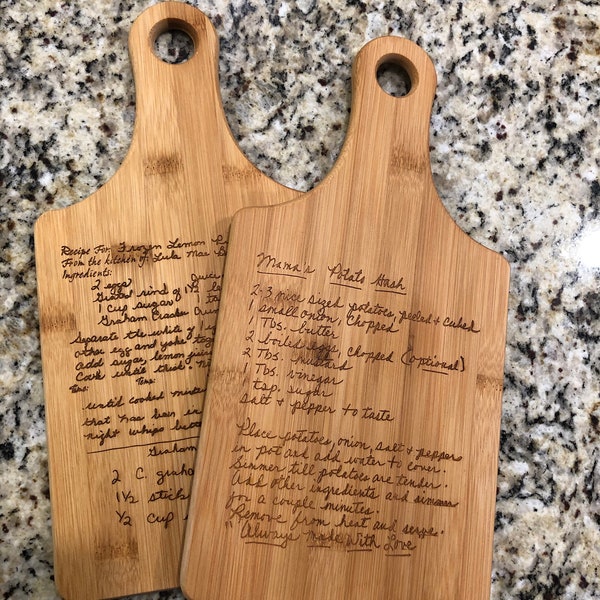 Recipe For: Frozen Lemon
From the kitchen of: Lula Mae
Ingredients:
2 eggs
Juice
Grated rind of 1½
1 cup sugar
Graham Cracker
Separate the white of 1
other egg and yoke
add sugar, lemon juice
Cook until thick.
Time: Tems:
until cooked
that has been in
night whips
Graham
2 C. graham
1½ stick
½ cup
Mama's Potato Hash
2-3 nice sized potatoes, peeled & cubed
1 small onion, chopped
1 Tbs. butter
2 boiled eggs, chopped (optional)
2 Tbs. mustard
1 Tbs. vinegar
1 tsp. sugar
salt & pepper to taste
Place potatoes, onion, salt & pepper
in pot and add water to cover.
Simmer till potatoes are tender.
Add other ingredients and simmer
for a couple minutes.
Remove from heat and serve.
"Always Made With Love